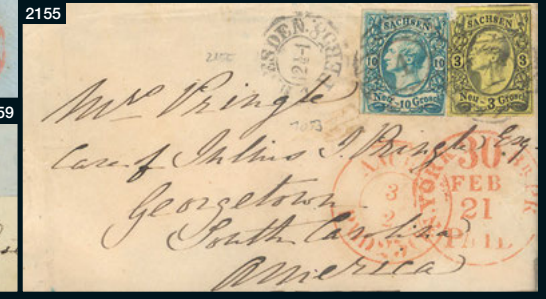 2155
59
SACHSEN
10 10
Neu-10 Grosch
SACHSEN
3 3
Neu-3 Grosch
2155
Mrs Pringle
Care of Julius J. Pringle Esq
Georgetown
South Carolina
America
30
FEB
21
PAID
YORK